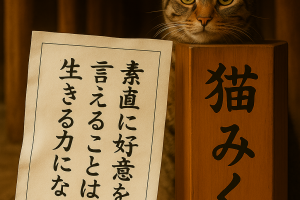 素直に好意を
言えることは
生きる力にな
猫みく